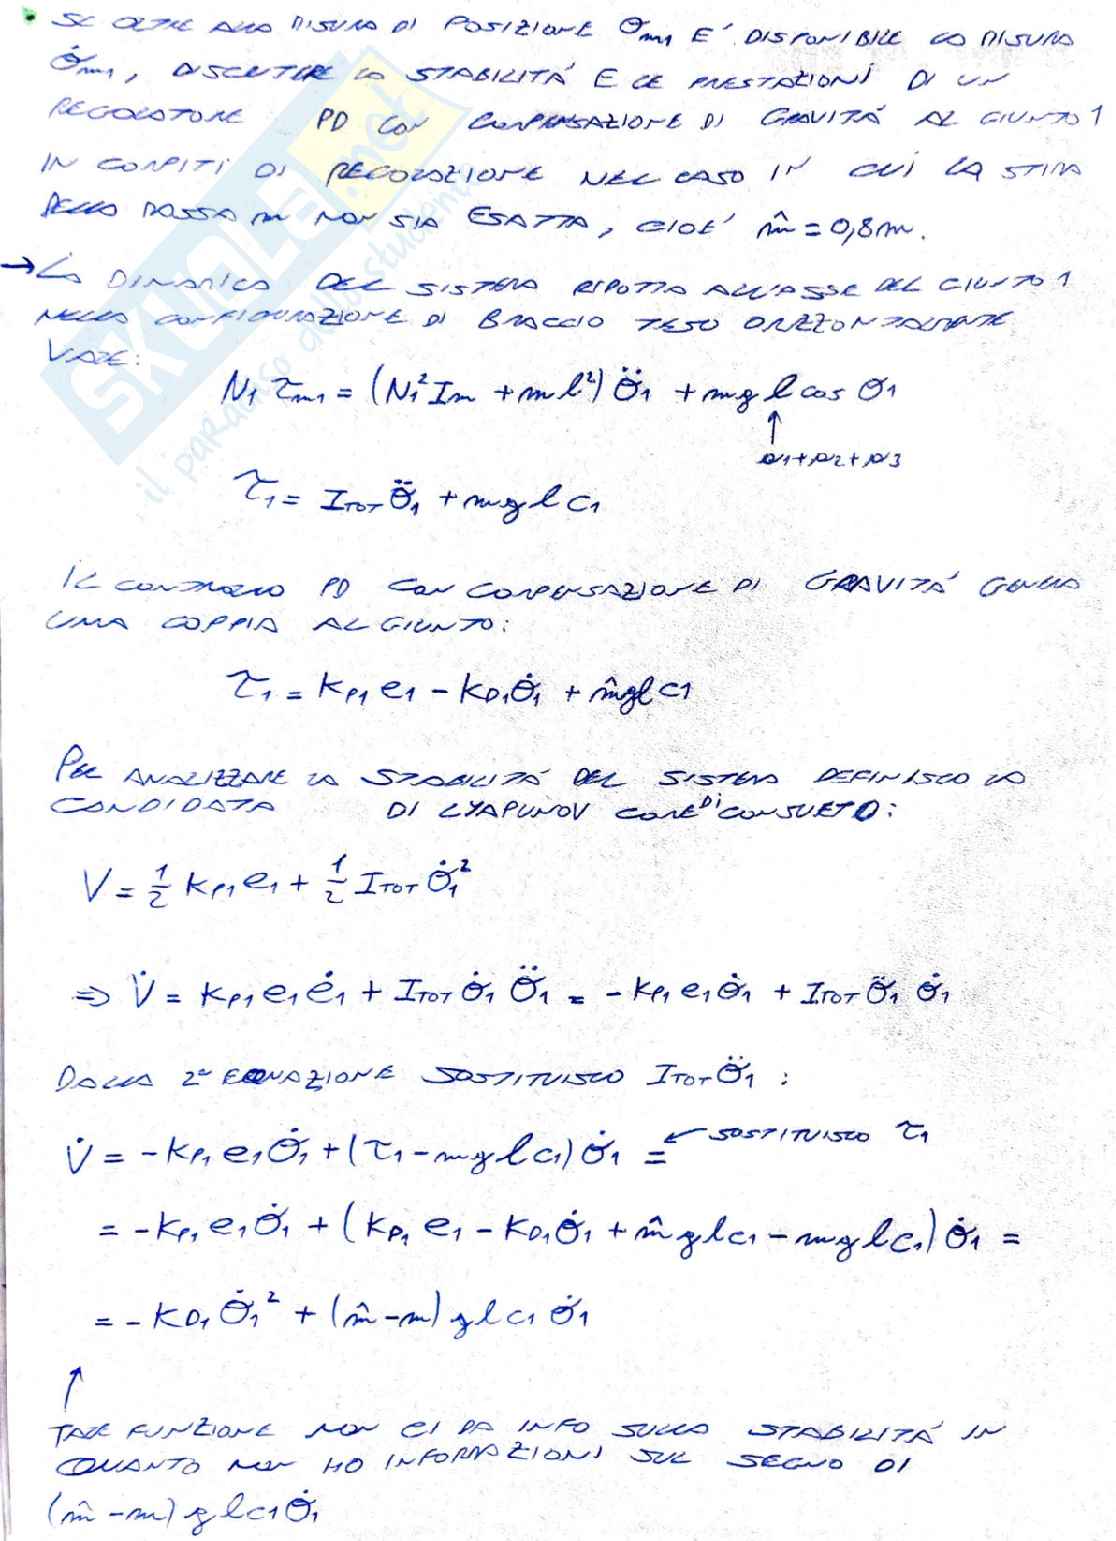 • SE OLTRE ALLA MISURA DI POSIZIONE Θm1 E' DISPONIBILE LA MISURA
Θ̇m1, DISCUTERE LA STABILITÁ E LE PRESTAZIONI DI UN
REGOLATORE PD CON COMPENSAZIONE DI GRAVITÁ AL GIUNTO 1
IN COMPITI DI REGOLAZIONE NEL CASO IN CUI LA STIMA
DELLA MASSA m NON SIA ESATTA, CIOE' m̂ = 0,8m.
→ LA DINAMICA DEL SISTEMA RIDOTTA ALL'ASSE DEL GIUNTO 1
NELLA CONFIGURAZIONE DI BRACCIO TESO ORIZZONTALMENTE
VALE:
N1 τm1 = (N1² Im + ml²) Θ̈1 + mg l cos Θ1
↑
a1+a2+a3
τ1 = ITOT Θ̈1 + mglc1
IL CONTROLLO PD CON COMPENSAZIONE DI GRAVITÁ GENERA
UNA COPPIA AL GIUNTO:
τ1 = KP1 e1 - KD1 Θ̇1 + m̂glc1
PER ANALIZZARE LA STABILITÁ DEL SISTEMA DEFINISCO LA
CANDIDATA DI LYAPUNOV COME DI CONSUETO:
V = ½ KP1 e1 + ½ ITOT Θ̇1²
⇒ V̇ = KP1 e1 ė1 + ITOT Θ̇1 Θ̈1 = - KP1 e1 Θ̇1 + ITOT Θ̈1 Θ̇1
DALLA 2ª EQUAZIONE SOSTITUISCO ITOT Θ̈1 :
V̇ = - KP1 e1 Θ̇1 + (τ1 - mglc1) Θ̇1 = ← SOSTITUISCO τ1
= - KP1 e1 Θ̇1 + (KP1 e1 - KD1 Θ̇1 + m̂glc1 - mglc1) Θ̇1 =
= - KD1 Θ̇1² + (m̂-m) glc1 Θ̇1
↑
TALE FUNZIONE NON CI DA INFO SULLA STABILITÁ IN
QUANTO NON HO INFORMAZIONI SUL SEGNO DI
(m̂-m) glc1 Θ̇1
SKUOLA.net
il paradiso dello studente